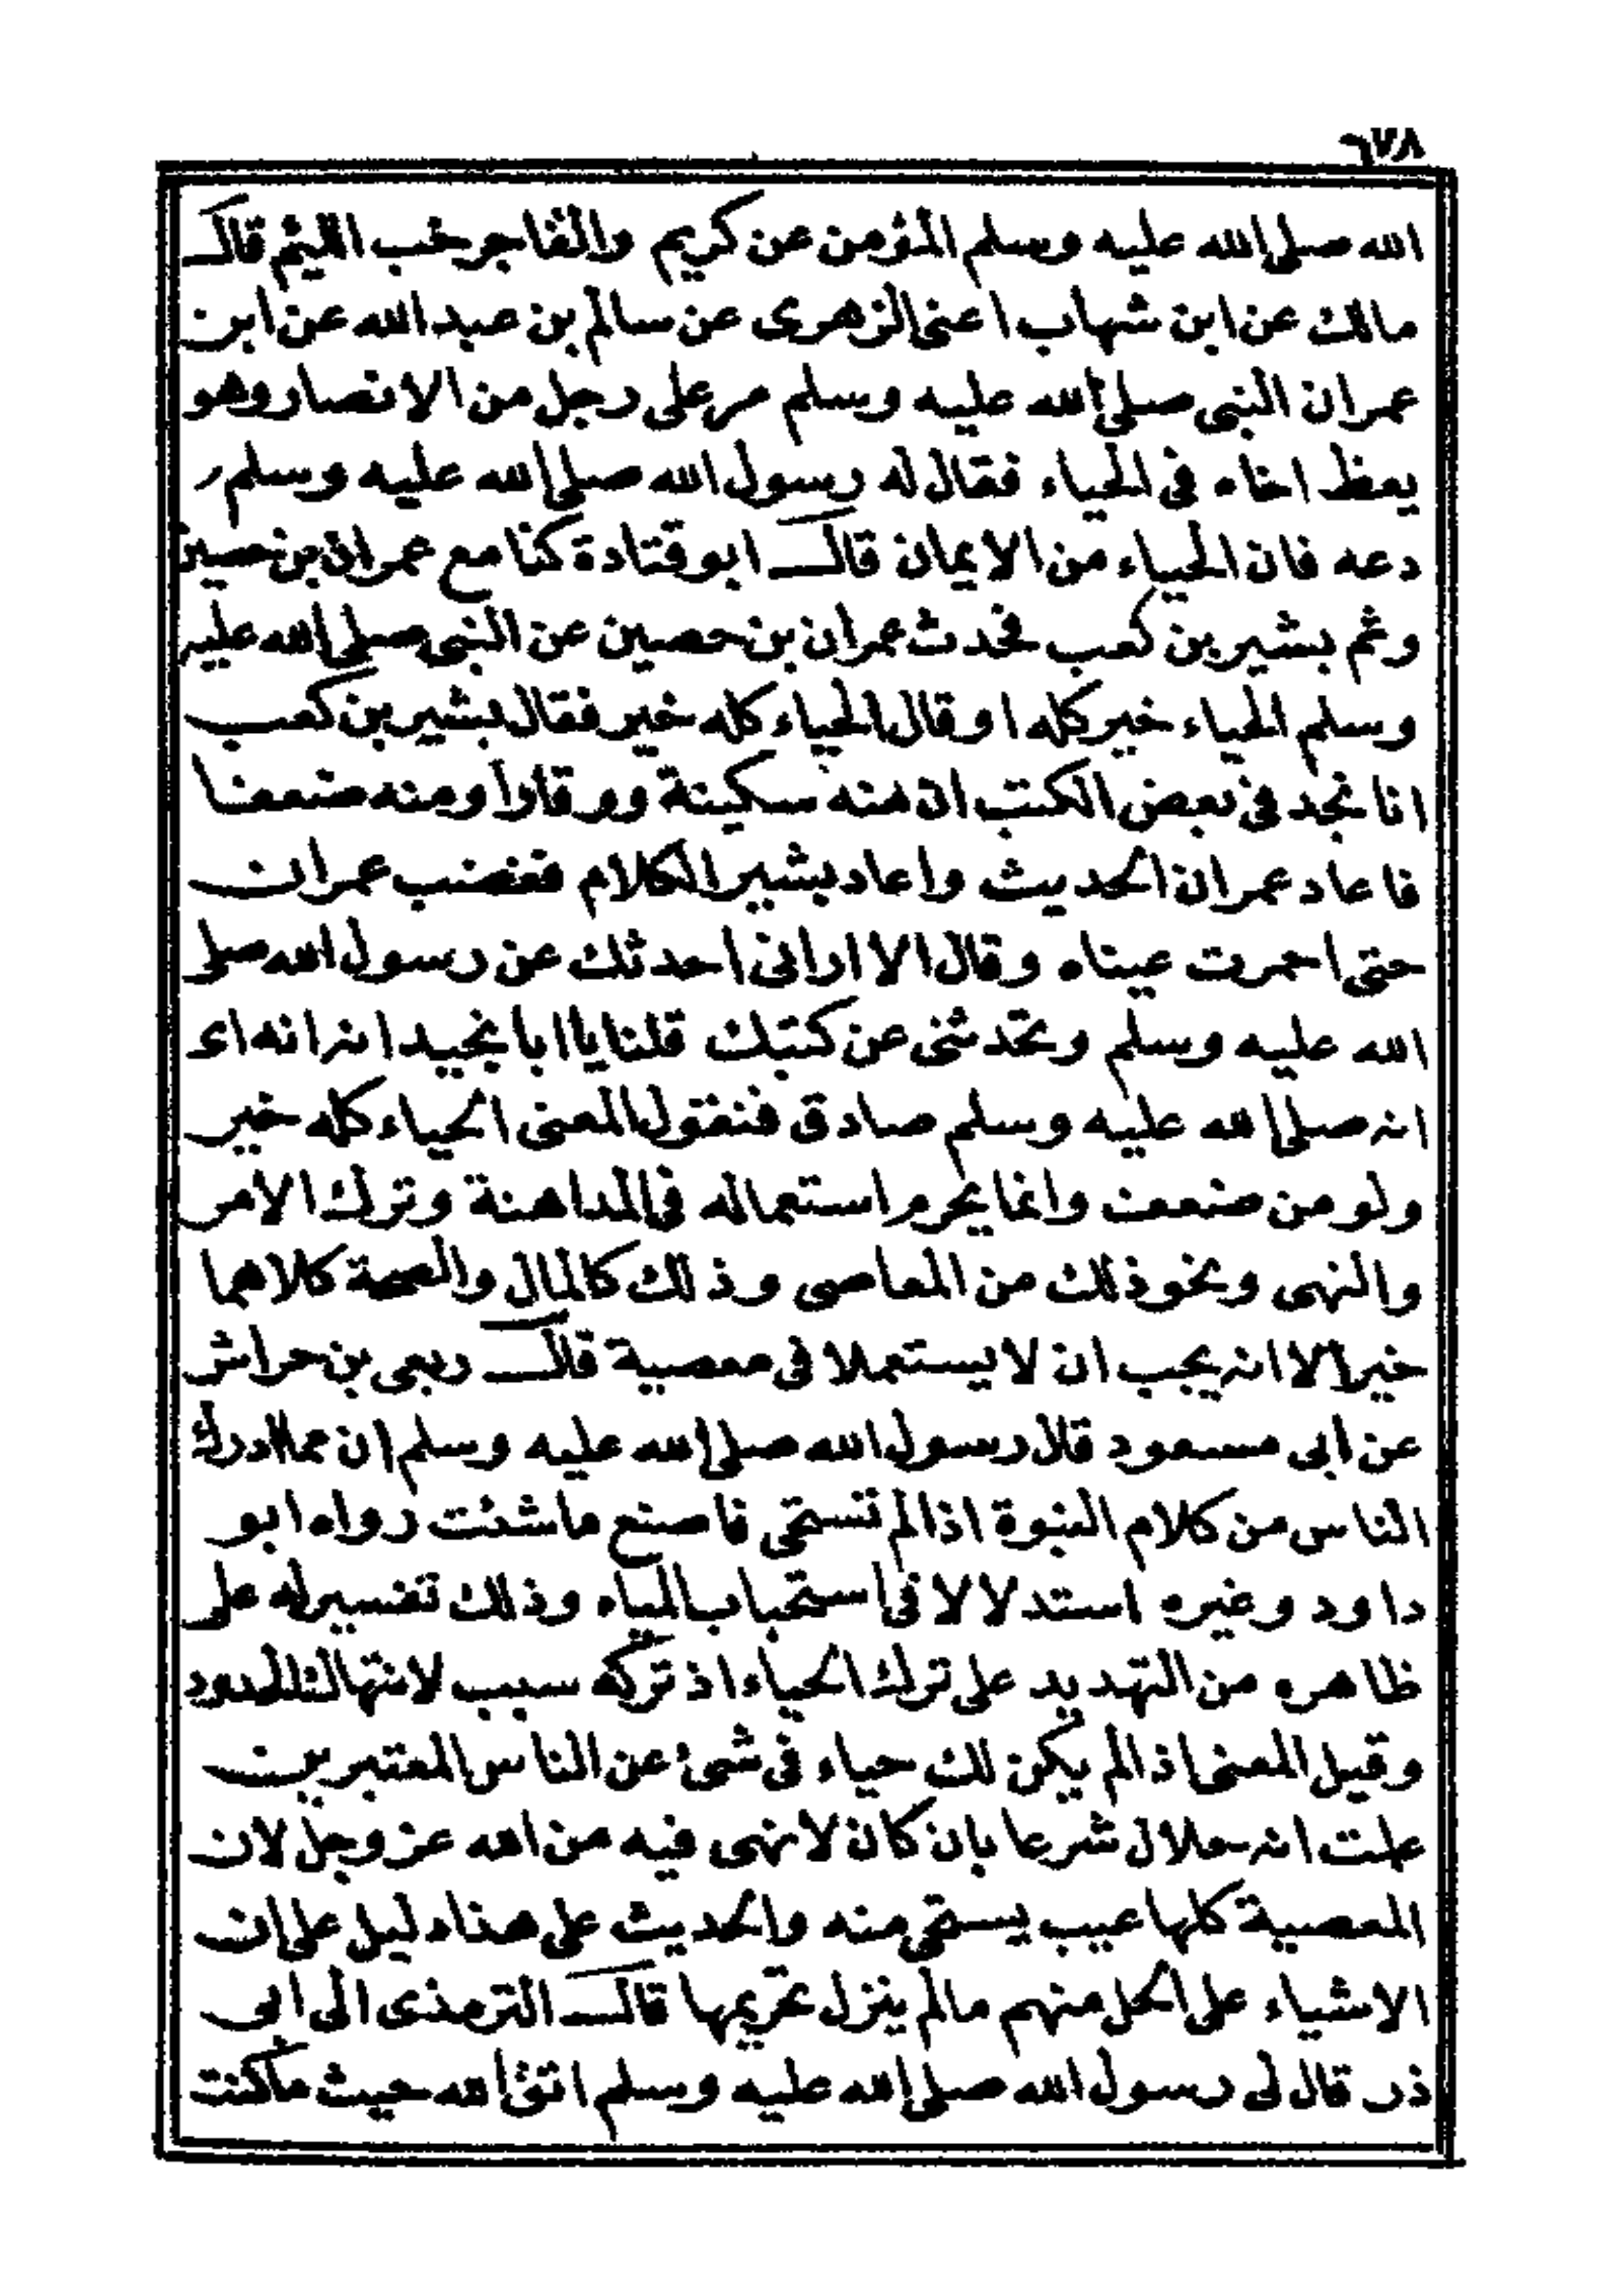 ٦٧٨
الله صلى الله عليه وسلم المؤمن عن كريم والفاجر خب اللئيم قال
مالك عن ابن شهاب اعنى الزهرى عن سالم بن عبد الله عن ابن
عمر ان النبى صلى الله عليه وسلم مر على رجل من الانصار وهو
يعظ اخاه فى الحياء فقال له رسول الله صلى الله عليه وسلم
دعه فان الحياء من الايمان قال ابو قتادة كنا مع عمران بن حصين
وثم بشير بن كعب فحدث عمران بن حصين عن النبى صلى الله عليه
وسلم الحياء خير كله او قال الحياء كله خير فقال بشير بن كعب
انا نجد فى بعض الكتب ان منه سكينة ووقارا ومنه ضعفا
فاعاد عمران الحديث واعاد بشير الكلام فغضب عمران
حتى احمرت عيناه وقال الا ارانى احدثك عن رسول الله صلى
الله عليه وسلم وتحدثنى عن كتبك قلنا يا ابا نجيد انه انه اى
انه صلى الله عليه وسلم صادق فنقول المعنى الحياء كله خير
ولو من ضعف وانما يحرم استعماله فى المداهنة وترك الامر
والنهى ونحو ذلك من المعاصى وذلك كالمال والصحة كلاهما
خير الا انه يجب ان لا يستعملا فى معصية قال ربعى بن حراش
عن ابى مسعود قال رسول الله صلى الله عليه وسلم ان مما ادرك
الناس من كلام النبوة اذا لم تستحى فاصنع ماشئت رواه ابو
داود وغيره استدلالا فى استحباب الحياء وذلك تفسير له على
ظاهره من التهديد على ترك الحياء اذ تركه سبب لانتهاك الحدود
وقيل المعنى اذا لم يكن لك حياء فى شئ عن الناس المعتبرين
علمت انه حلال شرعا بان كان لا نهى فيه من الله عز وجل لان
المعصية كلها عيب يستحى منه والحديث على هذا دليل على ان
الاشياء على الحل منهم مالم ينزل تحريمها قال الترمذى الى ابى
ذر قال لى رسول الله صلى الله عليه وسلم اتق الله حيث ماكنت